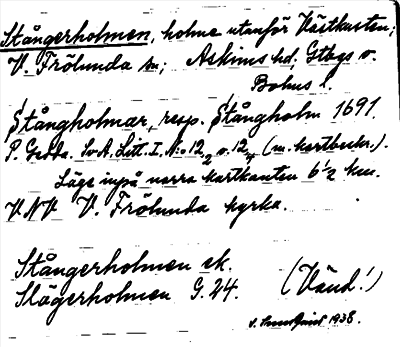 Stångerholmen, holme utanför Västkusten;
V. Frölunda sn; Askims hd, Gtbgs o.
Bohus l.
Stångholmar, resp. Stångholm 1691
P. Gedda. SvA. Litt. I. No: 12 o. 12 (m. kartbeskr.).
Läge inpå norra kartkanten 6½ km.
VNV V. Frölunda kyrka.
Stångerholmen ek.
Slägerholmen G. 24. (Vänd!)
1938.